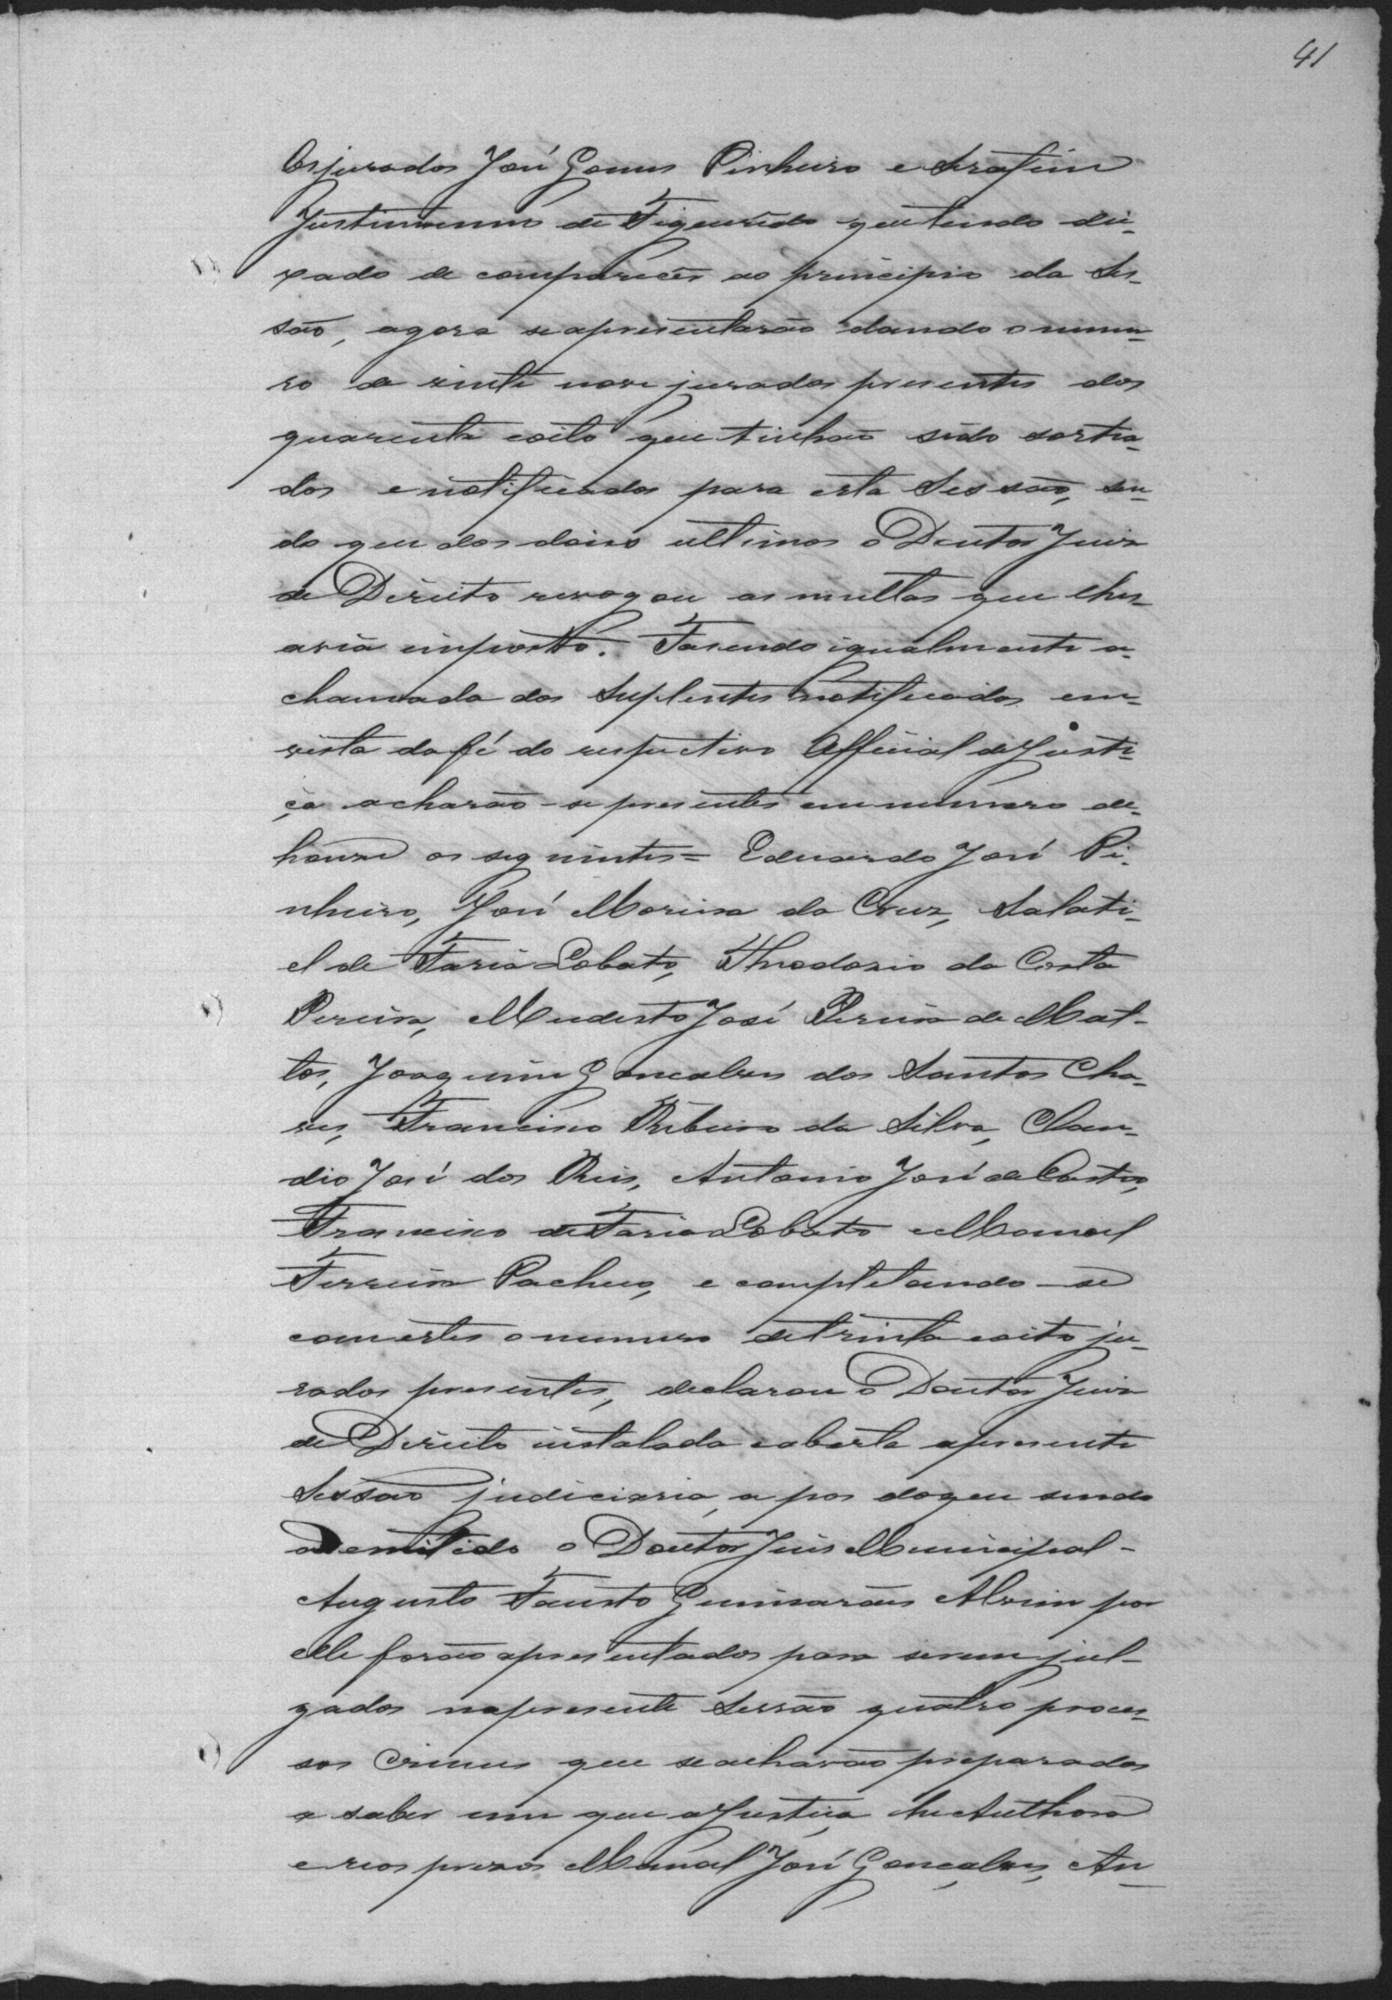 41
Os jurados José Gomes Pinheiro e Serafim
Justiniano de Figueredo que tendo dei-
xado de comparecer ao principio da Ses-
são, agora se apresentarão dando o nume-
ro de vinte nove jurados presentes dos
quarenta e oito que tinhão sido sortea-
dos e notificados para esta Sessão, sen-
do que dos dois ultimos o Doutor Juiz
de Direito revogou as multas que lhes
avia imposto. Fasendo igualmente a
chamada dos Suplentes notificados em
vista da fé do respectivo Official de Justi-
ça acharão-se presentes em numero de
nove os seguintes = Eduardo José Pi-
nheiro, José Moreira da Cruz, Salati-
el de Faria Lobato, Theodosio da Costa
Pereira, Modesto José Pereira de Mat-
tos, Joaquim Goncalves dos Santos Cha-
ves, Francisco Ribeiro da Silva, Clau-
dio José dos Reis, Antonio José de Castro,
Francisco de Faria Lobato e Manoel
Ferreira Pacheco, e completando-se
com estes o numero de trinta e oito ju-
rados presentes, declarou o Doutor Juiz
de Direito installada e aberta a presente
Sessão judiciaria, a pos do que sendo
ademitido o Doutor Juis Municipal
Augusto Fausto Guimarães Alvim por
elle forão apresentados para serem jul-
gados na presente Sessão quatro proces-
sos crimes que se achavão preparados
a saber um que a Justiça he Authora
e reos prezos Manoel José Gonçalves, An-